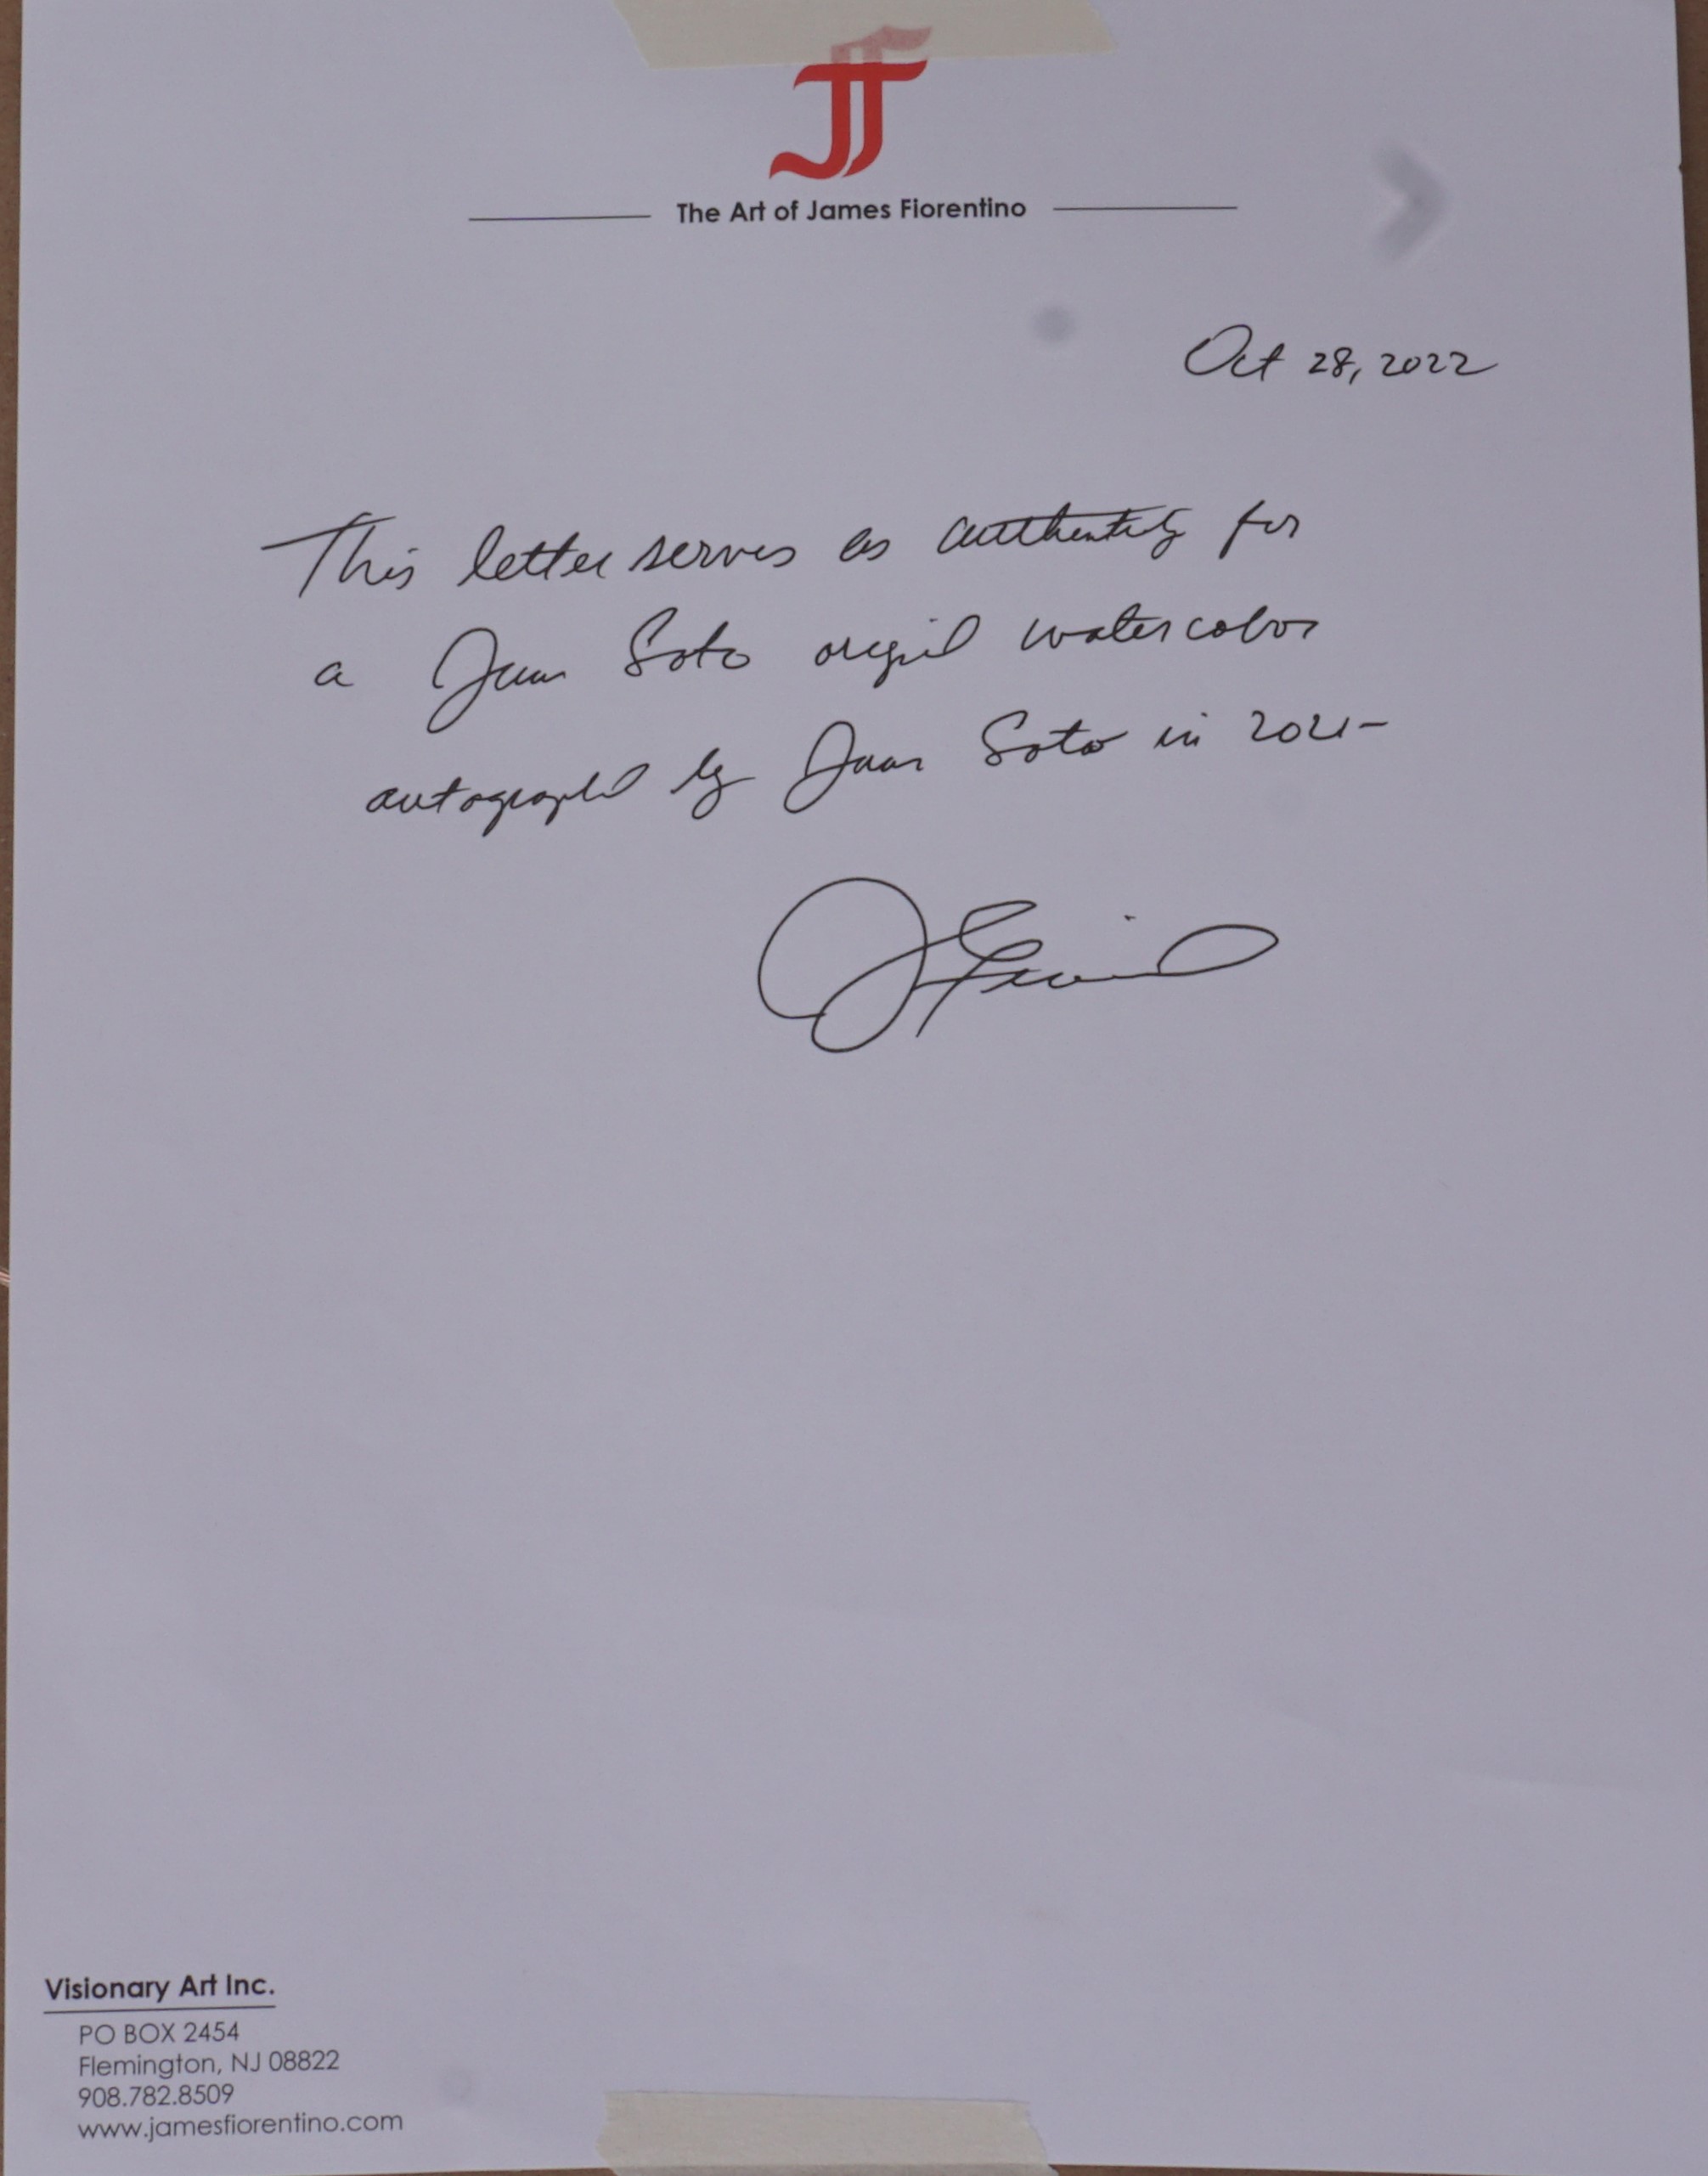 JF
The Art of James Fiorentino
Oct 28, 2022
This letter serves as authenticity for
a Juan Soto original watercolor
autographed by Juan Soto in 2021-
Visionary Art Inc.
PO BOX 2454
Flemington, NJ 08822
908.782.8509
www.jamesfiorentino.com